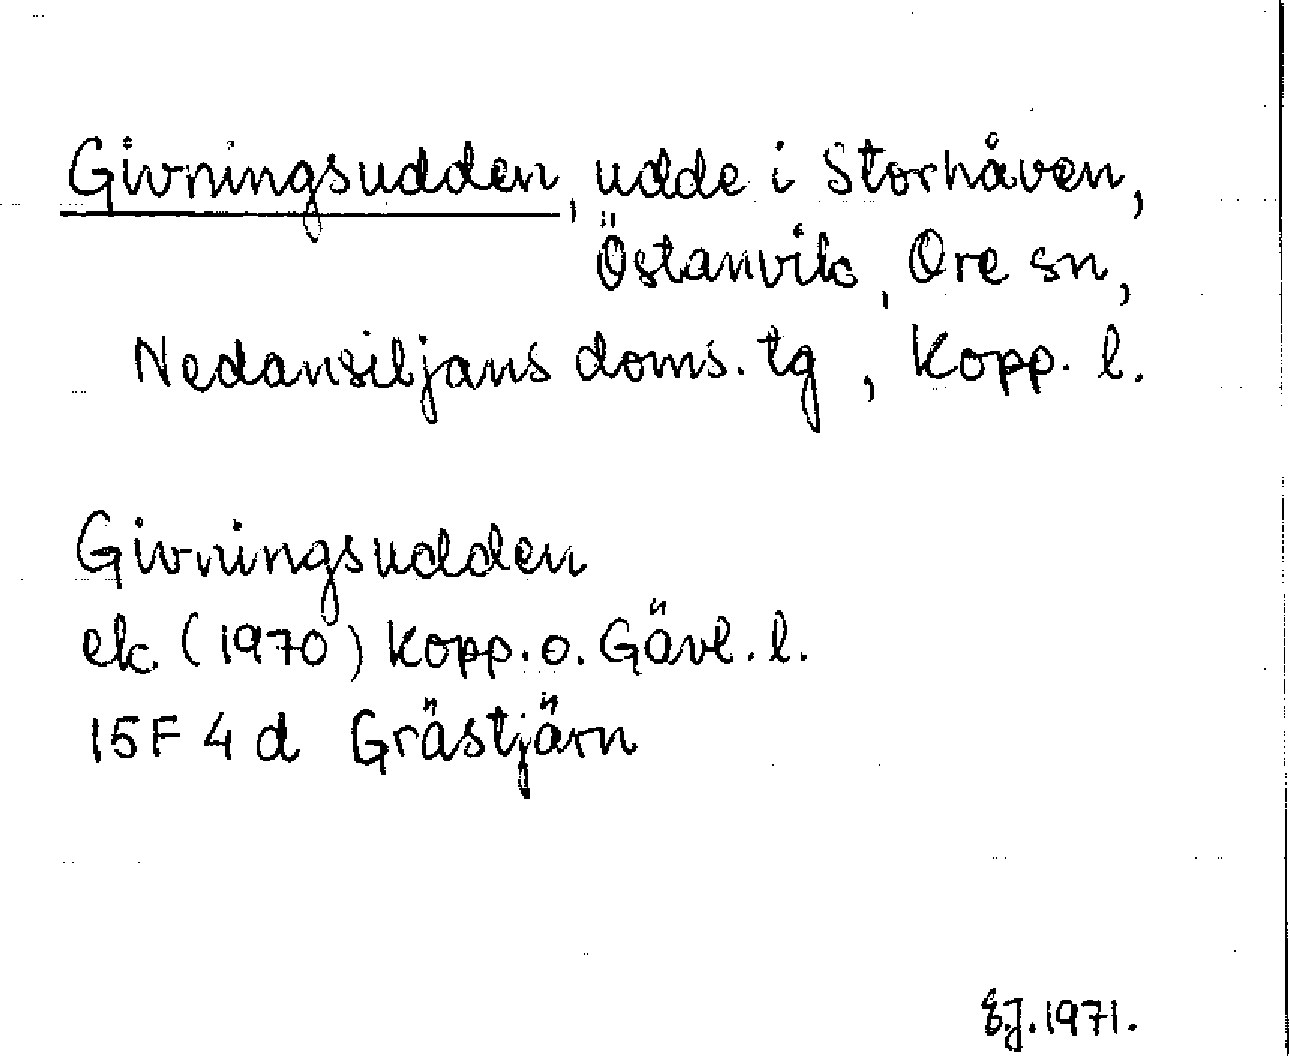 Givningsudden, udde i Storhåven,
Östanvik, Ore sn,
Nedansiljans doms. tg, Kopp. l.
Givningsudden
ek (1970) Kopp. o. Gävl. l.
15F 4d Grästjärn
E.J. 1971.